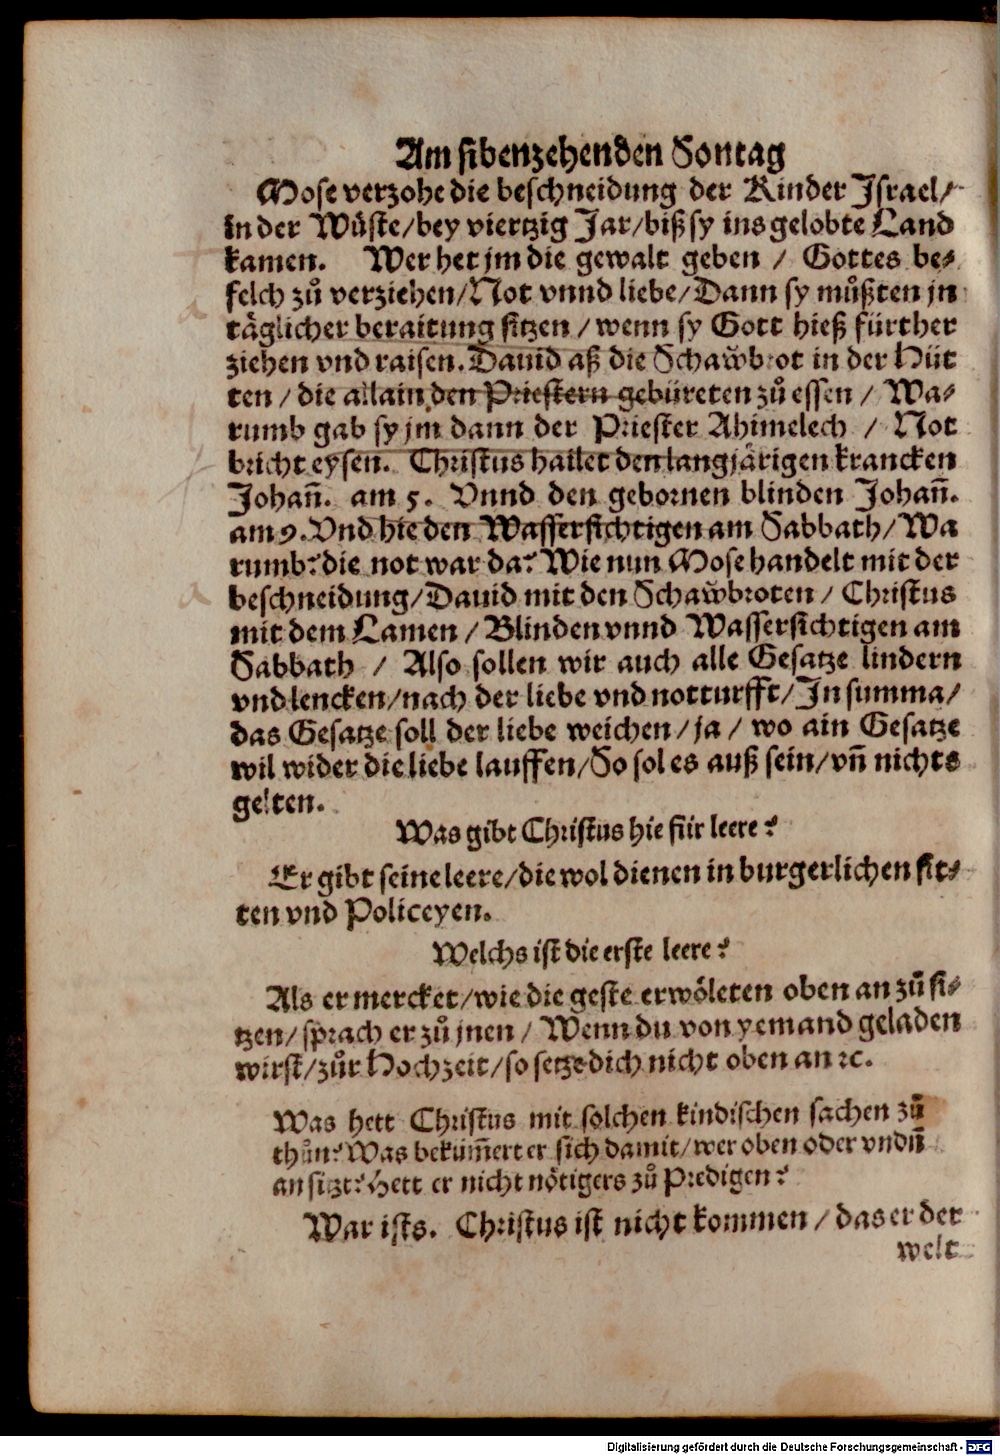 Am sibenzehenden Sontag
Mose verzohe die beschneidung der Kinder Israel/
in der Wüste/bey viertzig Jar/biß sy ins gelobte Land
kamen. Wer het jm die gewalt geben / Gottes be-
felch zů verziehen/Not vnnd liebe/Dann sy můßten jn
täglicher beraitung sitzen /wenn sy Gott hieß fürther
ziehen vnd raisen. Dauid aß die Schawbrot in der Hüt
ten / die allain den Priestern gebüreten zů essen / Wa-
rumb gab sy jm dann der Priester Ahimelech / Not
bricht eysen. Christus hailet den langjärigen krancken
Johañ. am 5. Vnnd den gebornen blinden Johañ.
am 9. Vnd hie den Wassersichtigen am Sabbath/Wa
rumb? die not war da? Wie nun Mose handelt mit der
beschneidung/Dauid mit den Schawbroten / Christus
mit dem Lamen / Blinden vnnd Wassersichtigen am
Sabbath / Also sollen wir auch alle Gesatze lindern
vnd lencken/nach der liebe vnd notturfft/In summa/
das Gesatze soll der liebe weichen/ja / wo ain Gesatze
wil wider die liebe lauffen/So sol es auß sein/vñ nichts
gelten.
Was gibt Christus hie für leere?
Er gibt seine leere/die wol dienen in burgerlichen sit-
ten vnd Policeyen.
Welchs ist die erste leere?
Als er mercket/wie die geste erwöleten oben an zů si-
tzen/sprach er zů jnen / Wenn du von yemand geladen
wirst/zůr Hochzeit/so setze dich nicht oben an ꝛc.
Was hett Christus mit solchen kindischen sachen zů
thůn? Was beküm̃ert er sich damit/wer oben oder vndñ
an sitzt? Hett er nicht nötigers zů Predigen?
War ists. Christus ist nicht kommen /das er der
welt
a
a
Digitalisierung gefördert durch die Deutsche Forschungsgemeinschaft - DFG